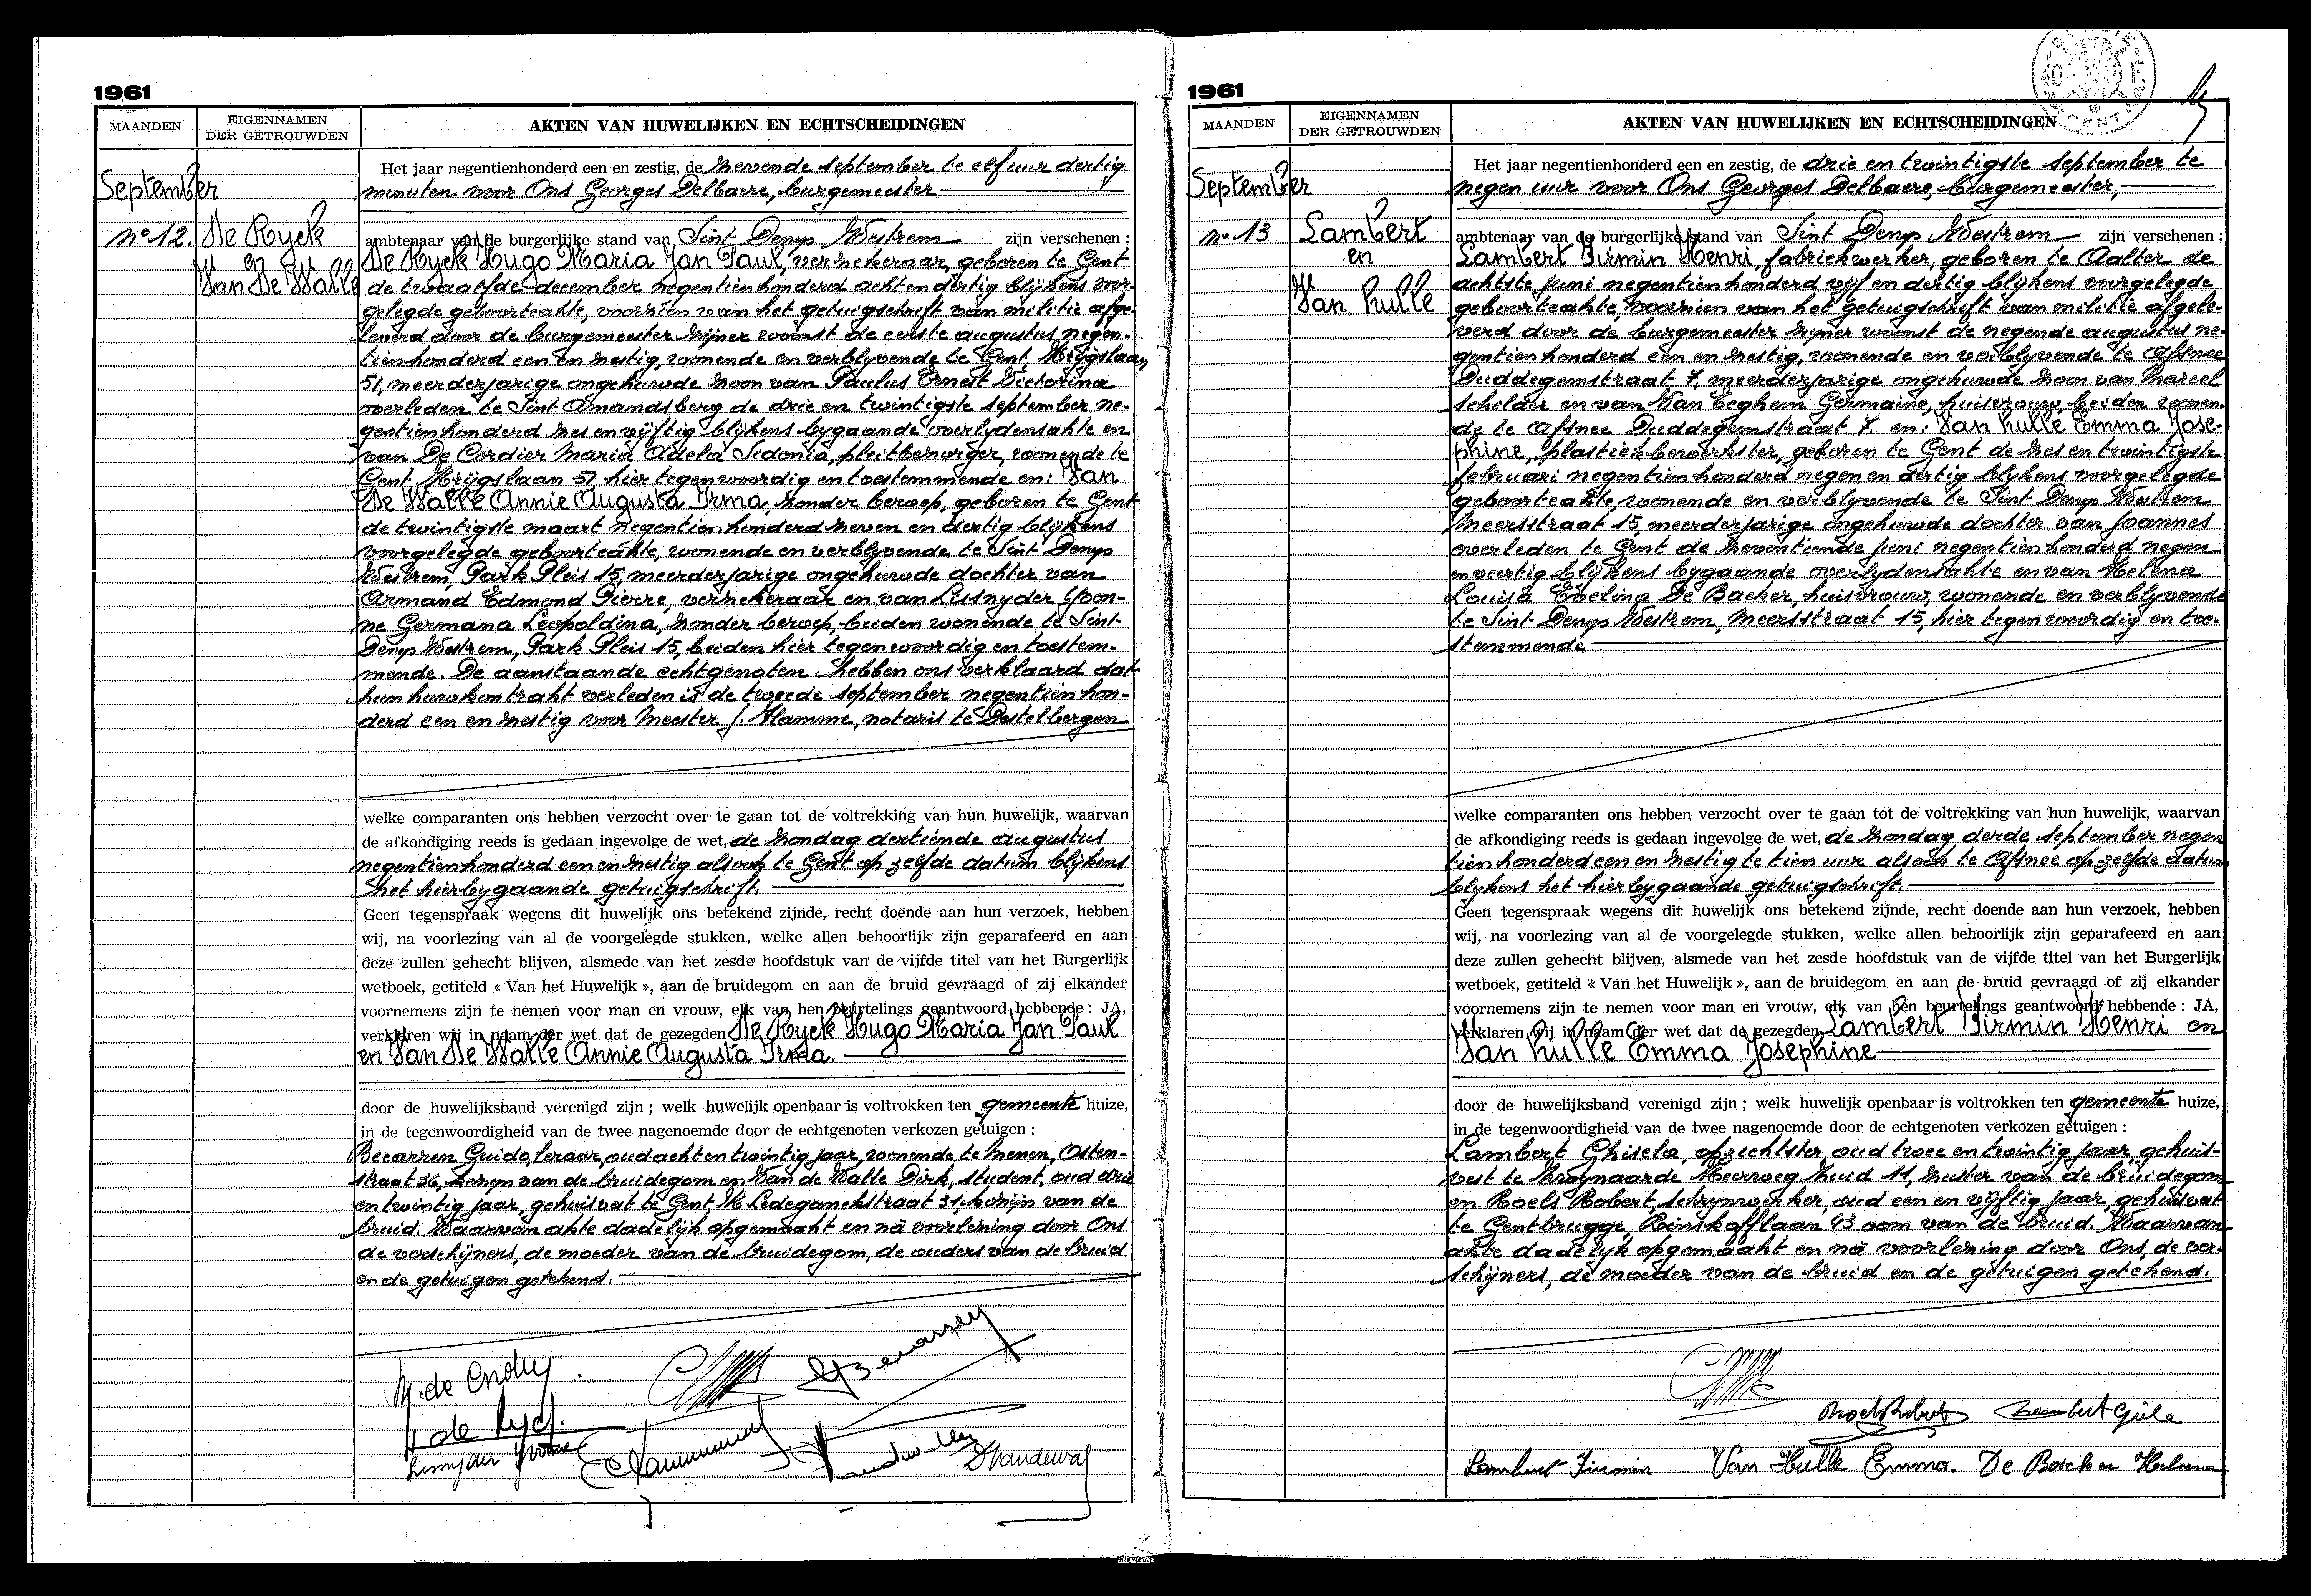 1961
MAANDEN
EIGENNAMEN
DER GETROUWDEN
AKTEN VAN HUWELIJKEN EN ECHTSCHEIDINGEN
September
n° 12.
De Ryck
en
Van De Walle
Het jaar negentienhonderd een en zestig, de zevende september te elf uur dertig
minuten voor Ons Georges Delbaere, burgemeester
ambtenaar van de burgerlijke stand van Sint Denys Westrem zijn verschenen :
De Ryck Hugo Maria Jan Paul, verzekeraar, geboren te Gent
de twaalfde december negentienhonderd acht en dertig blijkens voor-
gelegde geboorteakte, voorzien van het getuigschrift van militie afge-
leverd door de burgemeester zijner woonst de eerste augustus negen-
tienhonderd een en zestig, wonende en verblyvende te Gent, Krijgslaan
51, meerderjarige ongehuwde zoon van Paulus Ernest Victorina
overleden te Sint Amandsberg de drie en twintigste september ne-
gentienhonderd zes en vijftig blijkens bygaande overlydensakte en
van De Cordier Maria Adela Sidonia, pleitbezorger, wonende te
Gent Krijgslaan 51, hier tegenwoordig en toestemmende en: Van
De Walle Annie Augusta Irma, zonder beroep, geboren te Gent
de twintigste maart negentienhonderd zeven en dertig blijkens
voorgelegde geboorteakte, wonende en verblyvende te Sint Denys
Westrem, Park Pleis 15, meerderjarige ongehuwde dochter van
Armand Edmond Pierre, verzekeraar en van Lisnyder Yvon-
ne Germana Leopoldina, zonder beroep, beiden wonende te Sint
Denys Westrem, Park Pleis 15, beiden hier tegenwoordig en toestem-
mende. De aanstaande echtgenoten hebben ons verklaard dat
hun huwkontrakt verleden is de tweede september negentienhon-
derd een en zestig voor Meester J. Flamme, notaris te Destelbergen
welke comparanten ons hebben verzocht over te gaan tot de voltrekking van hun huwelijk, waarvan
de afkondiging reeds is gedaan ingevolge de wet, de zondag dertiende augustus
negentienhonderd een en zestig alsook te Gent op zelfde datum blijkens
het hierbygaande getuigschrift.
Geen tegenspraak wegens dit huwelijk ons betekend zijnde, recht doende aan hun verzoek, hebben
wij, na voorlezing van al de voorgelegde stukken, welke allen behoorlijk zijn geparafeerd en aan
deze zullen gehecht blijven, alsmede van het zesde hoofdstuk van de vijfde titel van het Burgerlijk
wetboek, getiteld « Van het Huwelijk », aan de bruidegom en aan de bruid gevraagd of zij elkander
voornemens zijn te nemen voor man en vrouw, elk van hen beurtelings geantwoord hebbende : JA,
verklaren wij in naam der wet dat de gezegden De Ryck Hugo Maria Jan Paul
en Van De Walle Annie Augusta Irma.
door de huwelijksband verenigd zijn ; welk huwelijk openbaar is voltrokken ten gemeente huize,
in de tegenwoordigheid van de twee nagenoemde door de echtgenoten verkozen getuigen :
Becarren Guido, leraar, oud acht en twintig jaar, wonende te Menen, Osten-
straat 36, kozyn van de bruidegom en Van de Walle Dirk, student, oud drie
en twintig jaar, gehuisvat te Gent, K. Ledeganckstraat 31, kozijn van de
bruid. Waarvan akte dadelijk opgemaakt en nà voorlezing door Ons
de verschijners, de moeder van de bruidegom, de ouders van de bruid
en de getuigen getekend.
M. de Cordier
de Ryck.
Lisnyder Yvonne
D Vandewal
1961
MAANDEN
EIGENNAMEN
DER GETROUWDEN
AKTEN VAN HUWELIJKEN EN ECHTSCHEIDINGEN
September
n° 13
Lambert
en
Van hulle
Het jaar negentienhonderd een en zestig, de drie en twintigste september te
negen uur voor Ons Georges Delbaere, burgemeester,
ambtenaar van de burgerlijke stand van Sint Denys Westrem zijn verschenen :
Lambert Firmin Henri, fabriekwerker, geboren te Aalter de
achtste juni negentienhonderd vijf en dertig blijkens voorgelegde
geboorteakte, voorzien van het getuigschrift van militie afgele-
verd door de burgemeester zijner woonst de negende augustus ne-
gentienhonderd een en zestig, wonende en verblyvende te Afsnee
Duddegemstraat 7, meerderjarige ongehuwde zoon van Marcel
schilder en van Van Eeghem Germaine, huisvrouw, beiden wonen-
de te Afsnee Duddegemstraat 7. en: Van hulle Emma Jose-
phine, plastiekbewerkster, geboren te Gent de zes en twintigste
februari negentienhonderd negen en dertig blijkens voorgelegde
geboorteakte, wonende en verblyvende te Sint Denys Westrem
Meersstraat 15, meerderjarige ongehuwde dochter van Joannes
overleden te Gent de zeventiende juni negentienhonderd negen
en veertig blijkens bygaande overlydensakte en van Helena
Louisa Evelina De Backer, huisvrouw, wonende en verblyvende
te Sint Denys Westrem, Meersstraat 15, hier tegenwoordig en toe-
stemmende
welke comparanten ons hebben verzocht over te gaan tot de voltrekking van hun huwelijk, waarvan
de afkondiging reeds is gedaan ingevolge de wet, de zondag derde september negen
tienhonderd een en zestig te tien uur alsook te Afsnee op zelfde datum
blijkens het hierbygaande getuigschrift.
Geen tegenspraak wegens dit huwelijk ons betekend zijnde, recht doende aan hun verzoek, hebben
wij, na voorlezing van al de voorgelegde stukken, welke allen behoorlijk zijn geparafeerd en aan
deze zullen gehecht blijven, alsmede van het zesde hoofdstuk van de vijfde titel van het Burgerlijk
wetboek, getiteld « Van het Huwelijk », aan de bruidegom en aan de bruid gevraagd of zij elkander
voornemens zijn te nemen voor man en vrouw, elk van hen beurtelings geantwoord hebbende : JA,
verklaren wij in naam der wet dat de gezegden Lambert Firmin Henri en
Van hulle Emma Josephine
door de huwelijksband verenigd zijn ; welk huwelijk openbaar is voltrokken ten gemeente huize,
in de tegenwoordigheid van de twee nagenoemde door de echtgenoten verkozen getuigen :
Lambert Ghisela, opzichtster, oud twee en twintig jaar, gehuis-
vest te Zwijnaarde Heerweg Zuid 11, zuster van de bruidegom
en Roels Robert, schrynwerker, oud een en vijftig jaar, gehuisvat
te Gentbrugge, 93 oom van de bruid. Waarvan
akte dadelyk opgemaakt en nà voorlezing door Ons, de ver-
schijners, de moeder van de bruid en de getuigen getekend.
Roels Robert Lambert Gisela
Lambert Firmin Van Hulle Emma. De Backer Helena